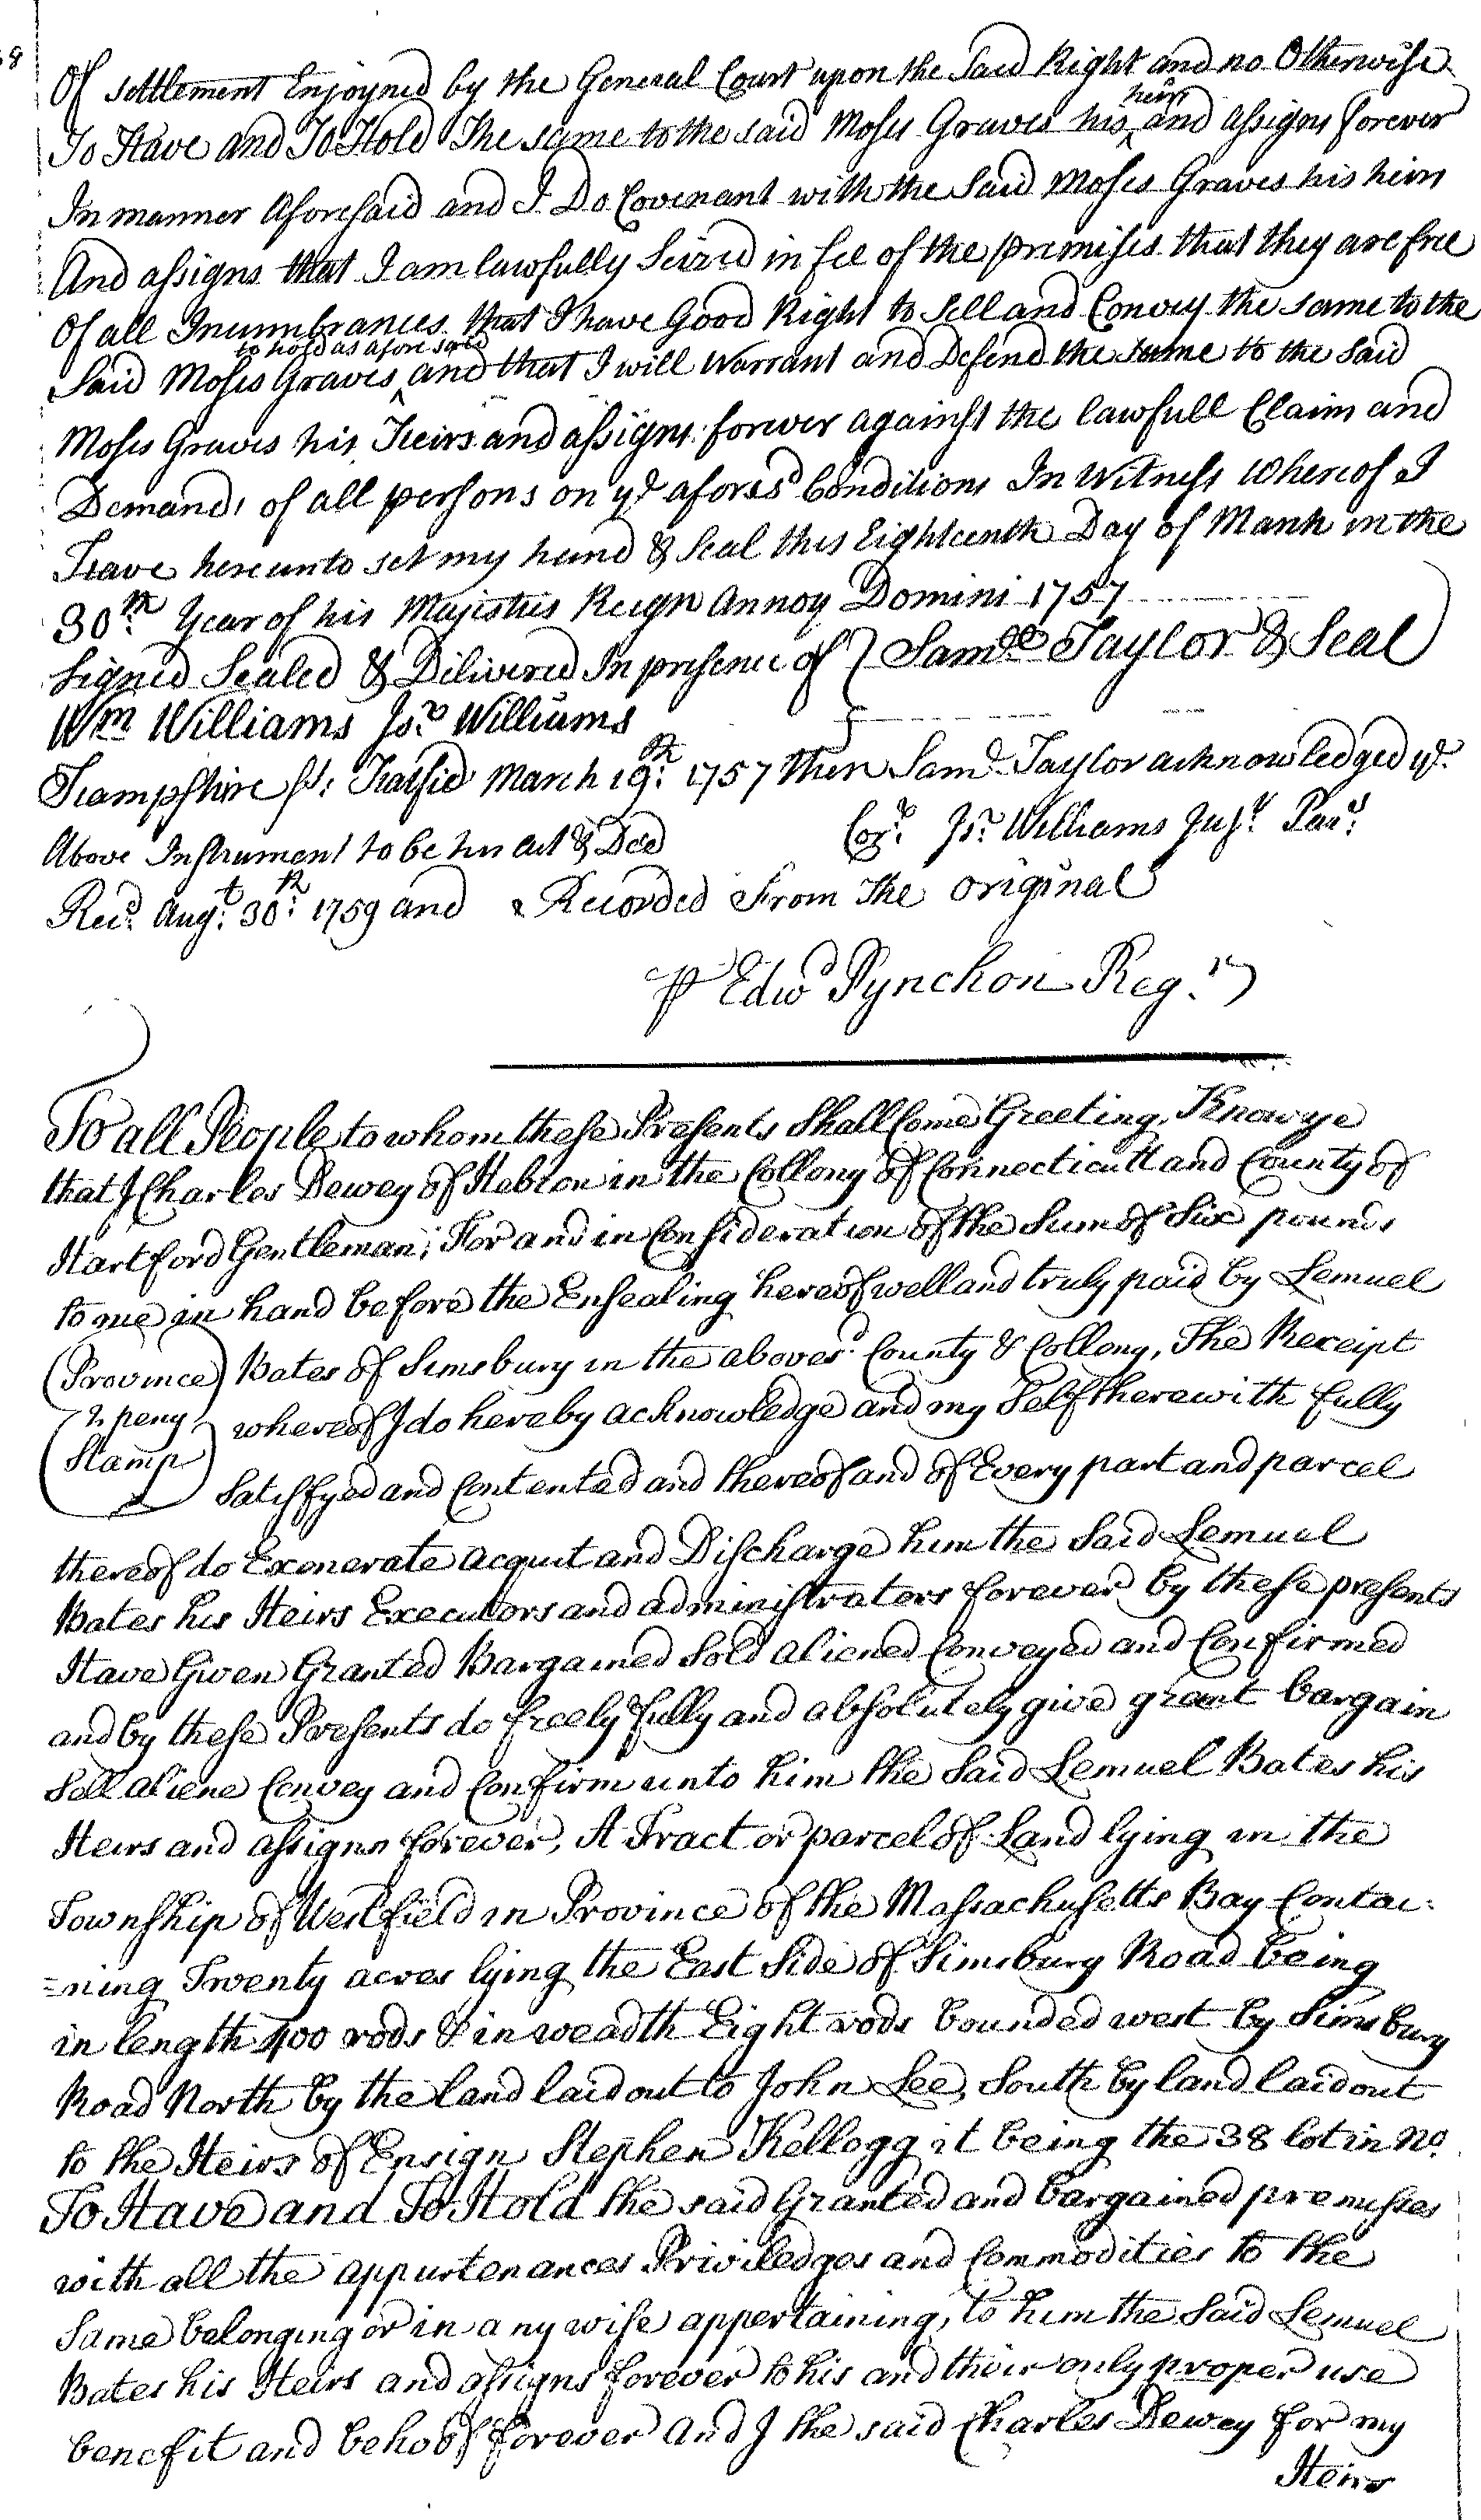 Of settlement Enjoyned by the General Court upon the Said Right and no Otherwise
To Have and To Hold The same to the said Moses Graves his heirs and assigns forever
In manner Aforesaid and I Do Covenant with the Said Moses Graves his heirs
And assigns that I am lawfully Seized in fee of the premises that they are free
Of all Incumbrances that I have Good Right to Sell and Convey the same to the
Said Moses Graves to hold as afore said and that I will Warrant and Defend the same to the Said
Moses Graves his Heirs and assigns forever against the lawfull Claim and
Demands of all persons on ye afores.d Conditions In Witness Whereof I
Have hereunto set my hand & Seal this Eighteenth Day of March in the
30.th Year of his Majesties Reign Annoq Domini 1757
Signed Sealed & Delivered In presence of } Sam.ll Taylor & Seal
Wm Williams Js.r Williams
Hampshire ss: Hatfied March 19.th 1757 then Sam.l Taylor acknowledged ye
Above Instrument to be his act & Deed
Cor.m Js.r Williams Jus.t Pac.s
Rec.d Aug.t 30.th 1759 and & Recorded From The original
P Edw.d Pynchon Reg.r
To all People to whom these Presents Shall Come Greeting, Know ye
that I Charles Dewey of Hebron in the Collony of Connecticutt and County of
Hartford Gentleman; For and in Consideration of the Sum of Six pounds
to me in hand before the Ensealing hereof well and truly paid by Lemuel
(Province) Bates of Simsbury in the aboves.d County & Collony, The Receipt
2 peny whereof I do hereby acknowledge and my Self therewith fully
Stamp Satisffyed and Contented and thereof and of Every part and parcel
thereof do Exonerate acquit and Discharge him the Said Lemuel
Bates his Heirs Executors and administrators forever by these presents
Have Given Granted Bargained Sold aliened Conveyed and Confirmed
and by these Presents do freely fully and absolutely give grant bargain
Sell aliene Convey and Confirm unto him the Said Lemuel Bates his
Heirs and assigns forever, A Tract or parcel of Land lying in the
Township of Westfield in Province of the Massachusetts Bay Contai=
=ning Twenty acres lying the East Side of Simsbury Road being
in length 400 rods & in weadth Eight rods bounded west by Simsbury
Road North by the land laid out to John Lee, South by land laid out
to the Heirs of Ensign Stephen Kellogg it being the 38 lot in No.
To Have and To Hold the said Granted and bargained premisses
with all the appurtenances Priviledges and Commodities to the
Same belonging or in any wise appertaining, to him the Said Lemuel
Bates his Heirs and assigns forever to his and their only proper use
benefit and behoof forever And I the said Charles Dewey for my
Heirs